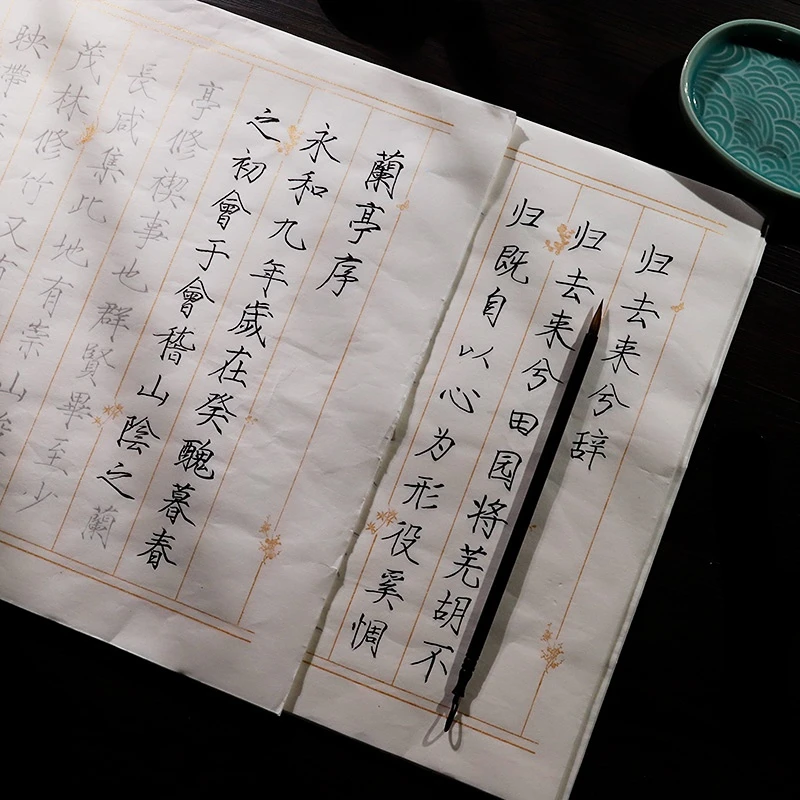 归去来兮辞
归去来兮田园将芜胡不
归既自以心为形役奚惆
蘭亭序
永和九年歲在癸醜暮春
之初會于會稽山陰之蘭
亭修禊事也群賢畢至少
長咸集此地有崇山
茂林修竹又有
映帶